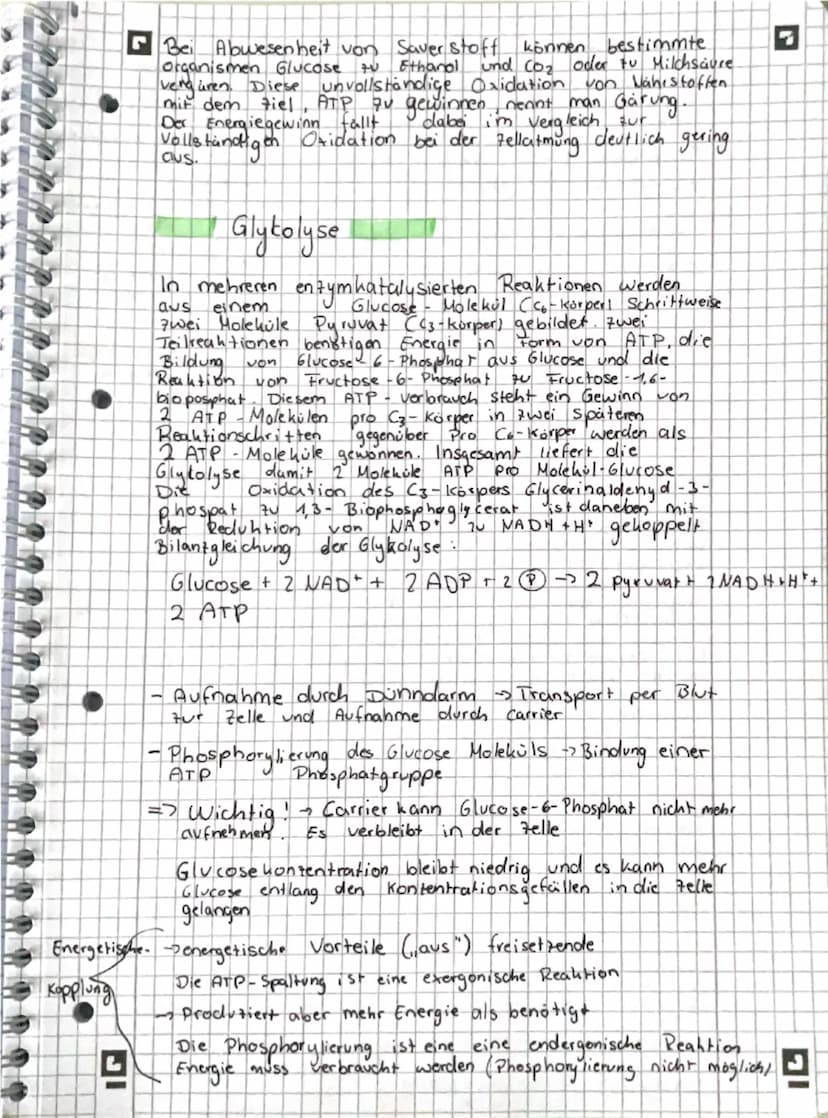 Bei Abwesenheit von Sauerstoff können bestimmte
organismen Glucose zu Ethanol und CO2 oder zu Milchsäure
vergären. Diese unvollständige Oxidation von Nährstoffen
mit dem Ziel, ATP zu gewinnen, nennt man Gärung.
Der Energiegewinn fällt dabei im Vergleich zur
Vollständigen Oxidation bei der Zellatmung deutlich gering
aus.
Glykolyse
In mehreren enzymkatalysierten Reaktionen werden
aus einem Glucose-Molekül (C6-Körper) Schrittweise
zwei Moleküle Pyruvat (C3-körper) gebildet. Zwei
Teilreaktionen benötigen Energie in Form von ATP, die
Bildung von Glucose-6-Phosphat aus Glucose und die
Reaktion von Fructose-6-Phosphat zu Fructose-1,6-
bioposphat. Diesem ATP-verbrauch steht ein Gewinn von
2 ATP-Molekülen pro C3-Körper in zwei späteren
Reaktionschritten gegenüber Pro C6-Körper werden als
2 ATP-Moleküle gewonnen. Insgesamt liefert die
Glykolyse damit 2 Moleküle ATP pro Molekül-Glucose
Die Oxidation des C3-Körpers Glycerinaldehyd-3-
phospat zu 1,3-Biophosphoglycerat ist daneben mit
der Reduktion von NAD+ zu NADH+H+ gekoppelt
Bilanzgleichung der Glykolyse:
Glucose + 2 NAD+ + 2 ADP + 2 Ⓟ → 2 Pyruvat + 2 NADH+H+ +
2 ATP
- Aufnahme durch Dünndarm → Transport per Blut
zur Zelle und Aufnahme durch Carrier
- Phosphorylierung des Glucose Moleküls → Bindung einer
ATP Phosphatgruppe
=> Wichtig! → Carrier kann Glucose-6-Phosphat nicht mehr
aufnehmen. Es verbleibt in der Zelle
Glucosekonzentration bleibt niedrig und es kann mehr
Glucose entlang den Konzentrationsgefällen in die Zelle
gelangen
Energetische- → energetische Vorteile („aus“) freisetzende
Die ATP-Spaltung ist eine exergonische Reaktion
Kopplung
→ Produziert aber mehr Energie als benötigt
Die Phosphorylierung ist eine eine endergonische Reaktion
Energie muss verbraucht werden (Phosphorylierung nicht möglich)